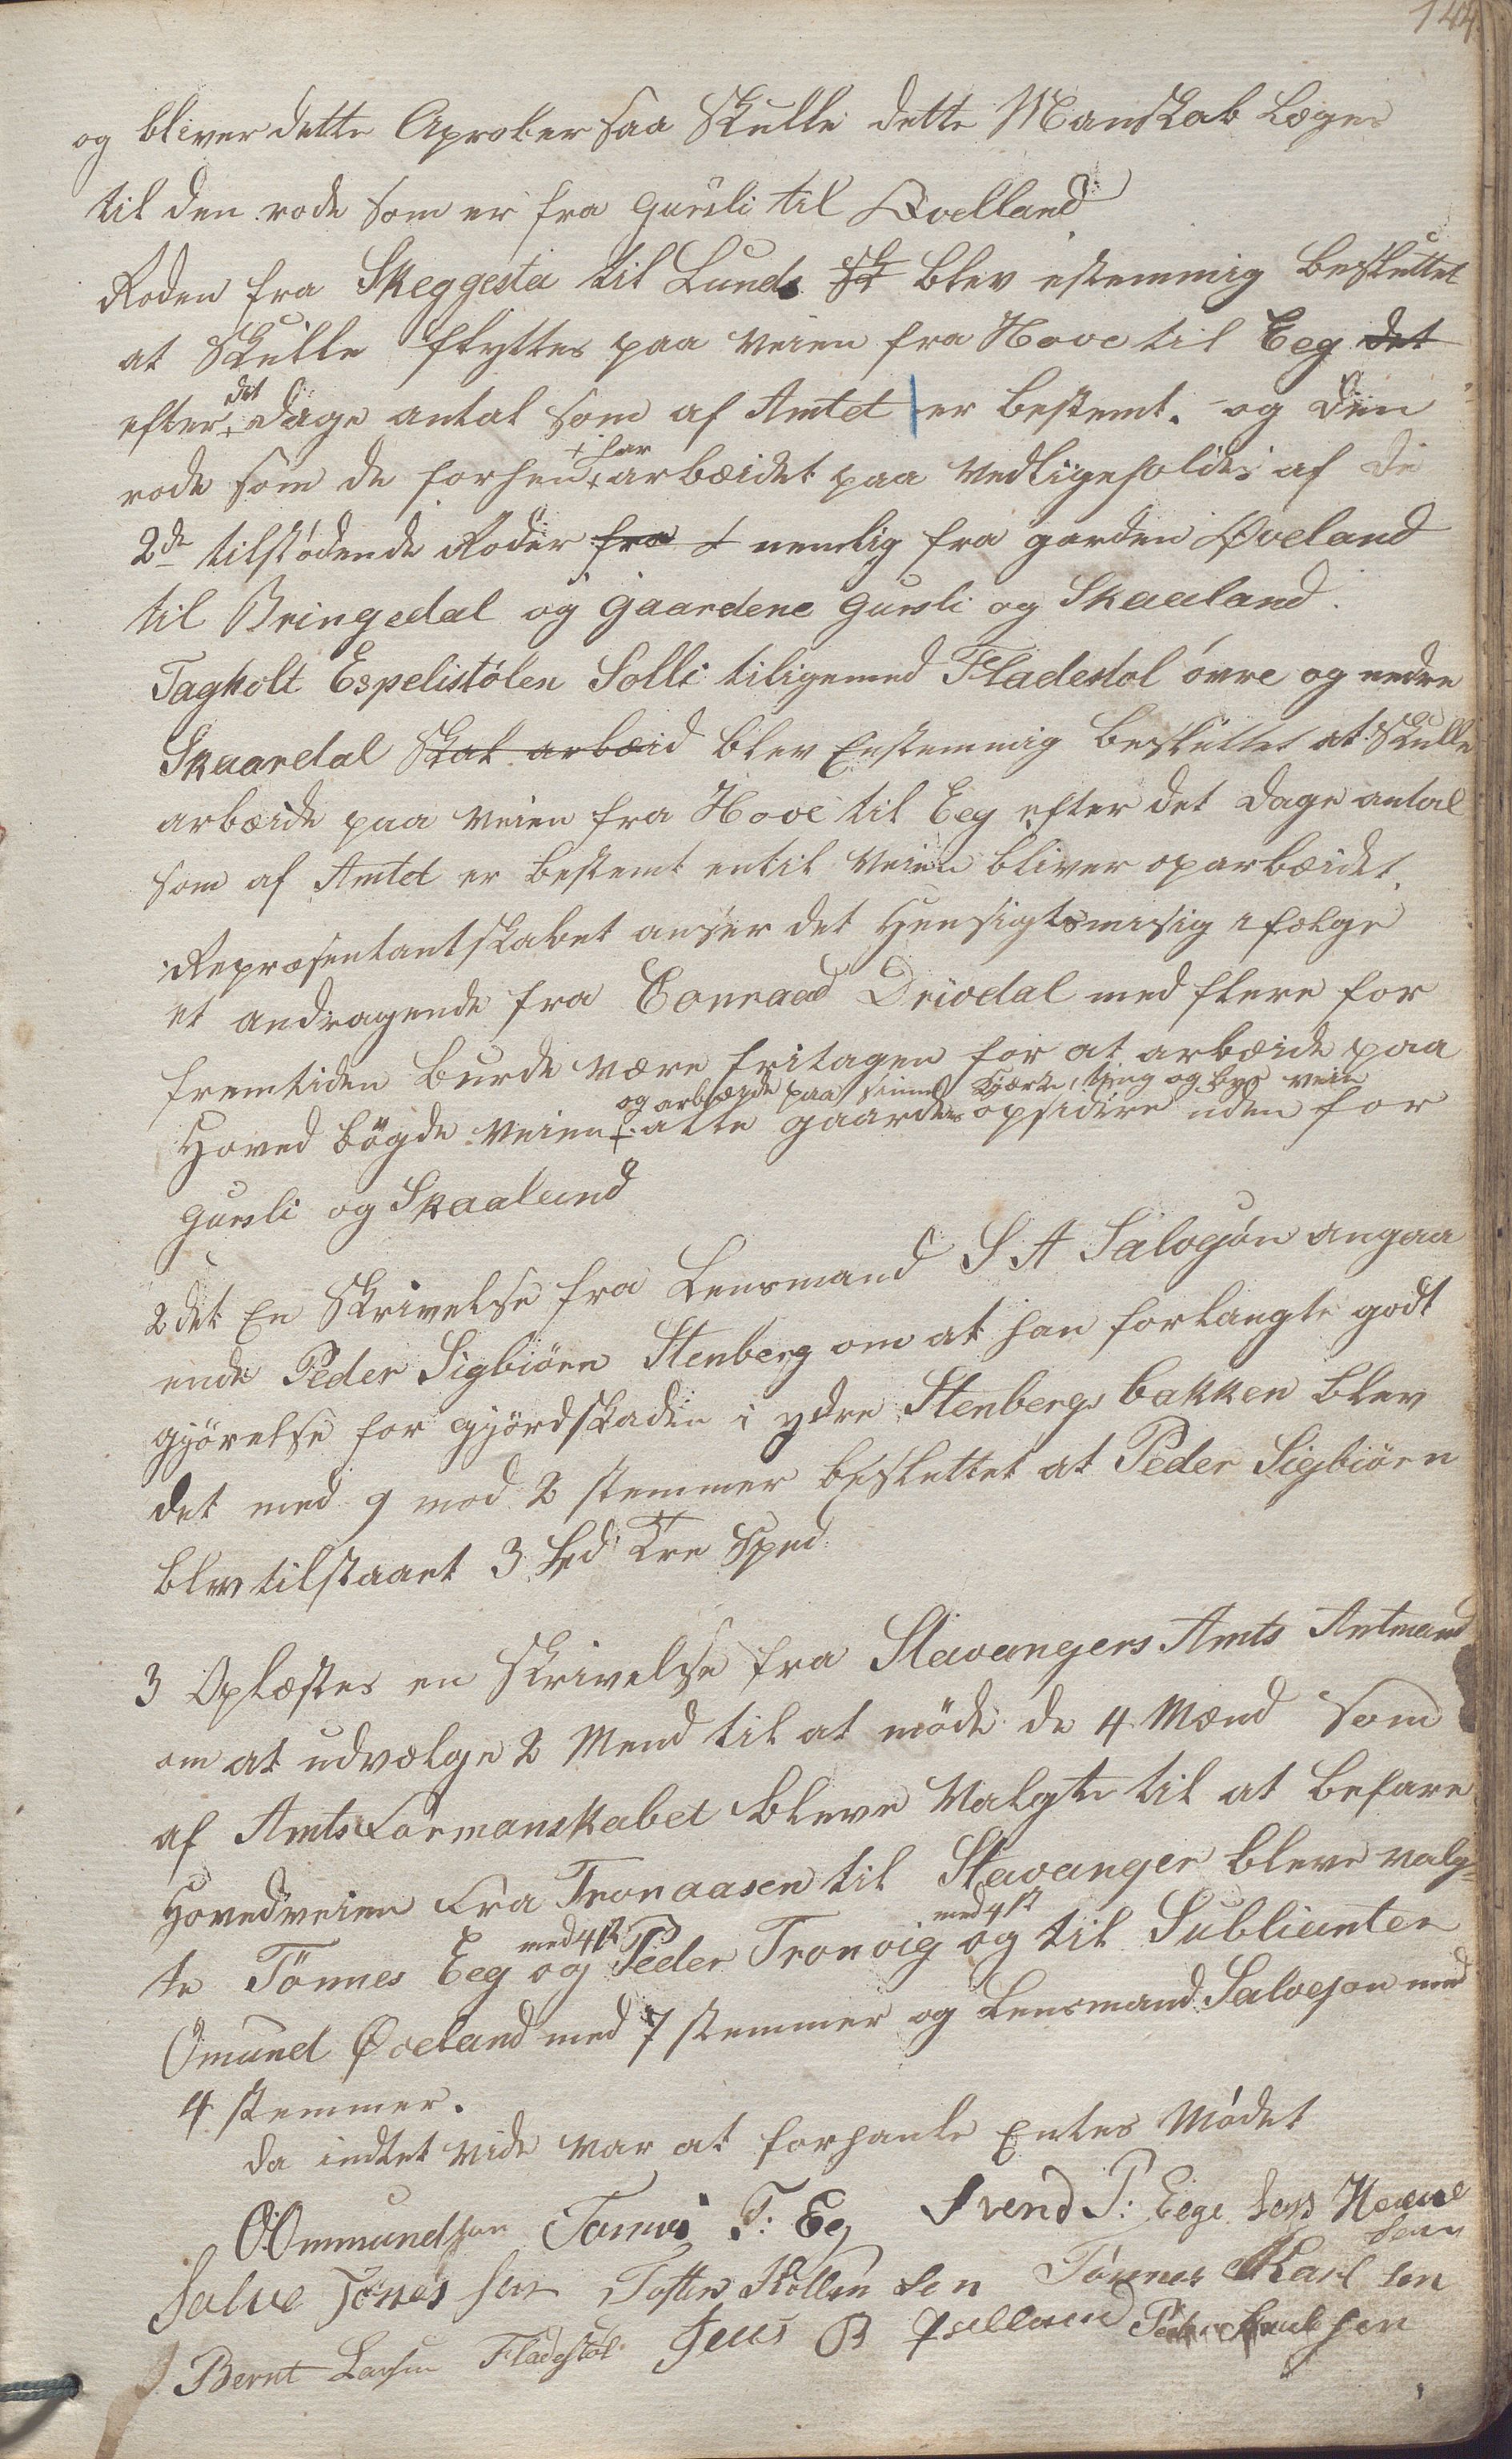 144
og bliver dette Aprober saa Skulle dette Manskab Læges
til den rode som er fra Gursli til Qvelland
Roden fra Skeggesta til Lunds Sk blev estemmig besluttet
at Skulle flyttes paa Veien fra Hove til Eeg det
efter det Dage antal som af Amtet er bestemt. og den
rode som de forhen har arbæidet paa Vedligeholdes af de
2de tilstødende Roder fra nemlig fra garden Qveland
til Bringedal og Gaardene Gursli og Skaaland.
Tagholt Espelistølen Solli tiligemed Fladestøl øvre og nedre
Skaardal Skal arbæid blev Enstemmig besluttet at Skulle
arbæide paa Veien fra Hove til Eeg efter det Dage antal
som af Amtet er bestemt entil Veien bliver oparbæidet.
Repræsentantskabet anser det Hensigtsmesig ifølge
et andragende fra Conraad Drivdal med flere for
fremtiden burde være fritagen for at arbæide paa
og arbæide paa sinne Kjærke, ting og byg veie
Hoved bögde Veien alle gaarders opsidere uden for
Gursli og Skaaland
2det En Skrivelse fra Lensmand S A Salvesøn angaa
ende Peder Sigbiørn Stenberg om at han forlangte godt
gjørelse for gjørdskaden i ydre Stenbergs bakken blev
det med 9 mod 2 stemmer besluttet at Peder Sigbiørn
blev tilstaaet 3 Spd Tre Sped.
3 Oplæstes en Skrivelse fra Stavangers Amts Antmand
om at udvælge 2 Mend til at møde de 4 Mænd som
af Amtsformanskabet bleve Valgte til at befare
Hovedveien Fra Tronaasen til Stavanger bleve valg-
te Tønnes Eeg med 4 st og Peder Tronvig med 4 st og til Sublianter
Omund Qveland med 7 stemmer og Lensmand Salvesøn med
4 stemmer.
Da indtet vide var at forhanle Entes Mødet
O Ommundsen Tønnes T: Eeg Svend P: Eege Lars Hansen
Salve Tønes sen Tosten Kollsen Tønnes Karl sen
J Bernt Larsen Fladestøl Jens B Qvelland Peder sen